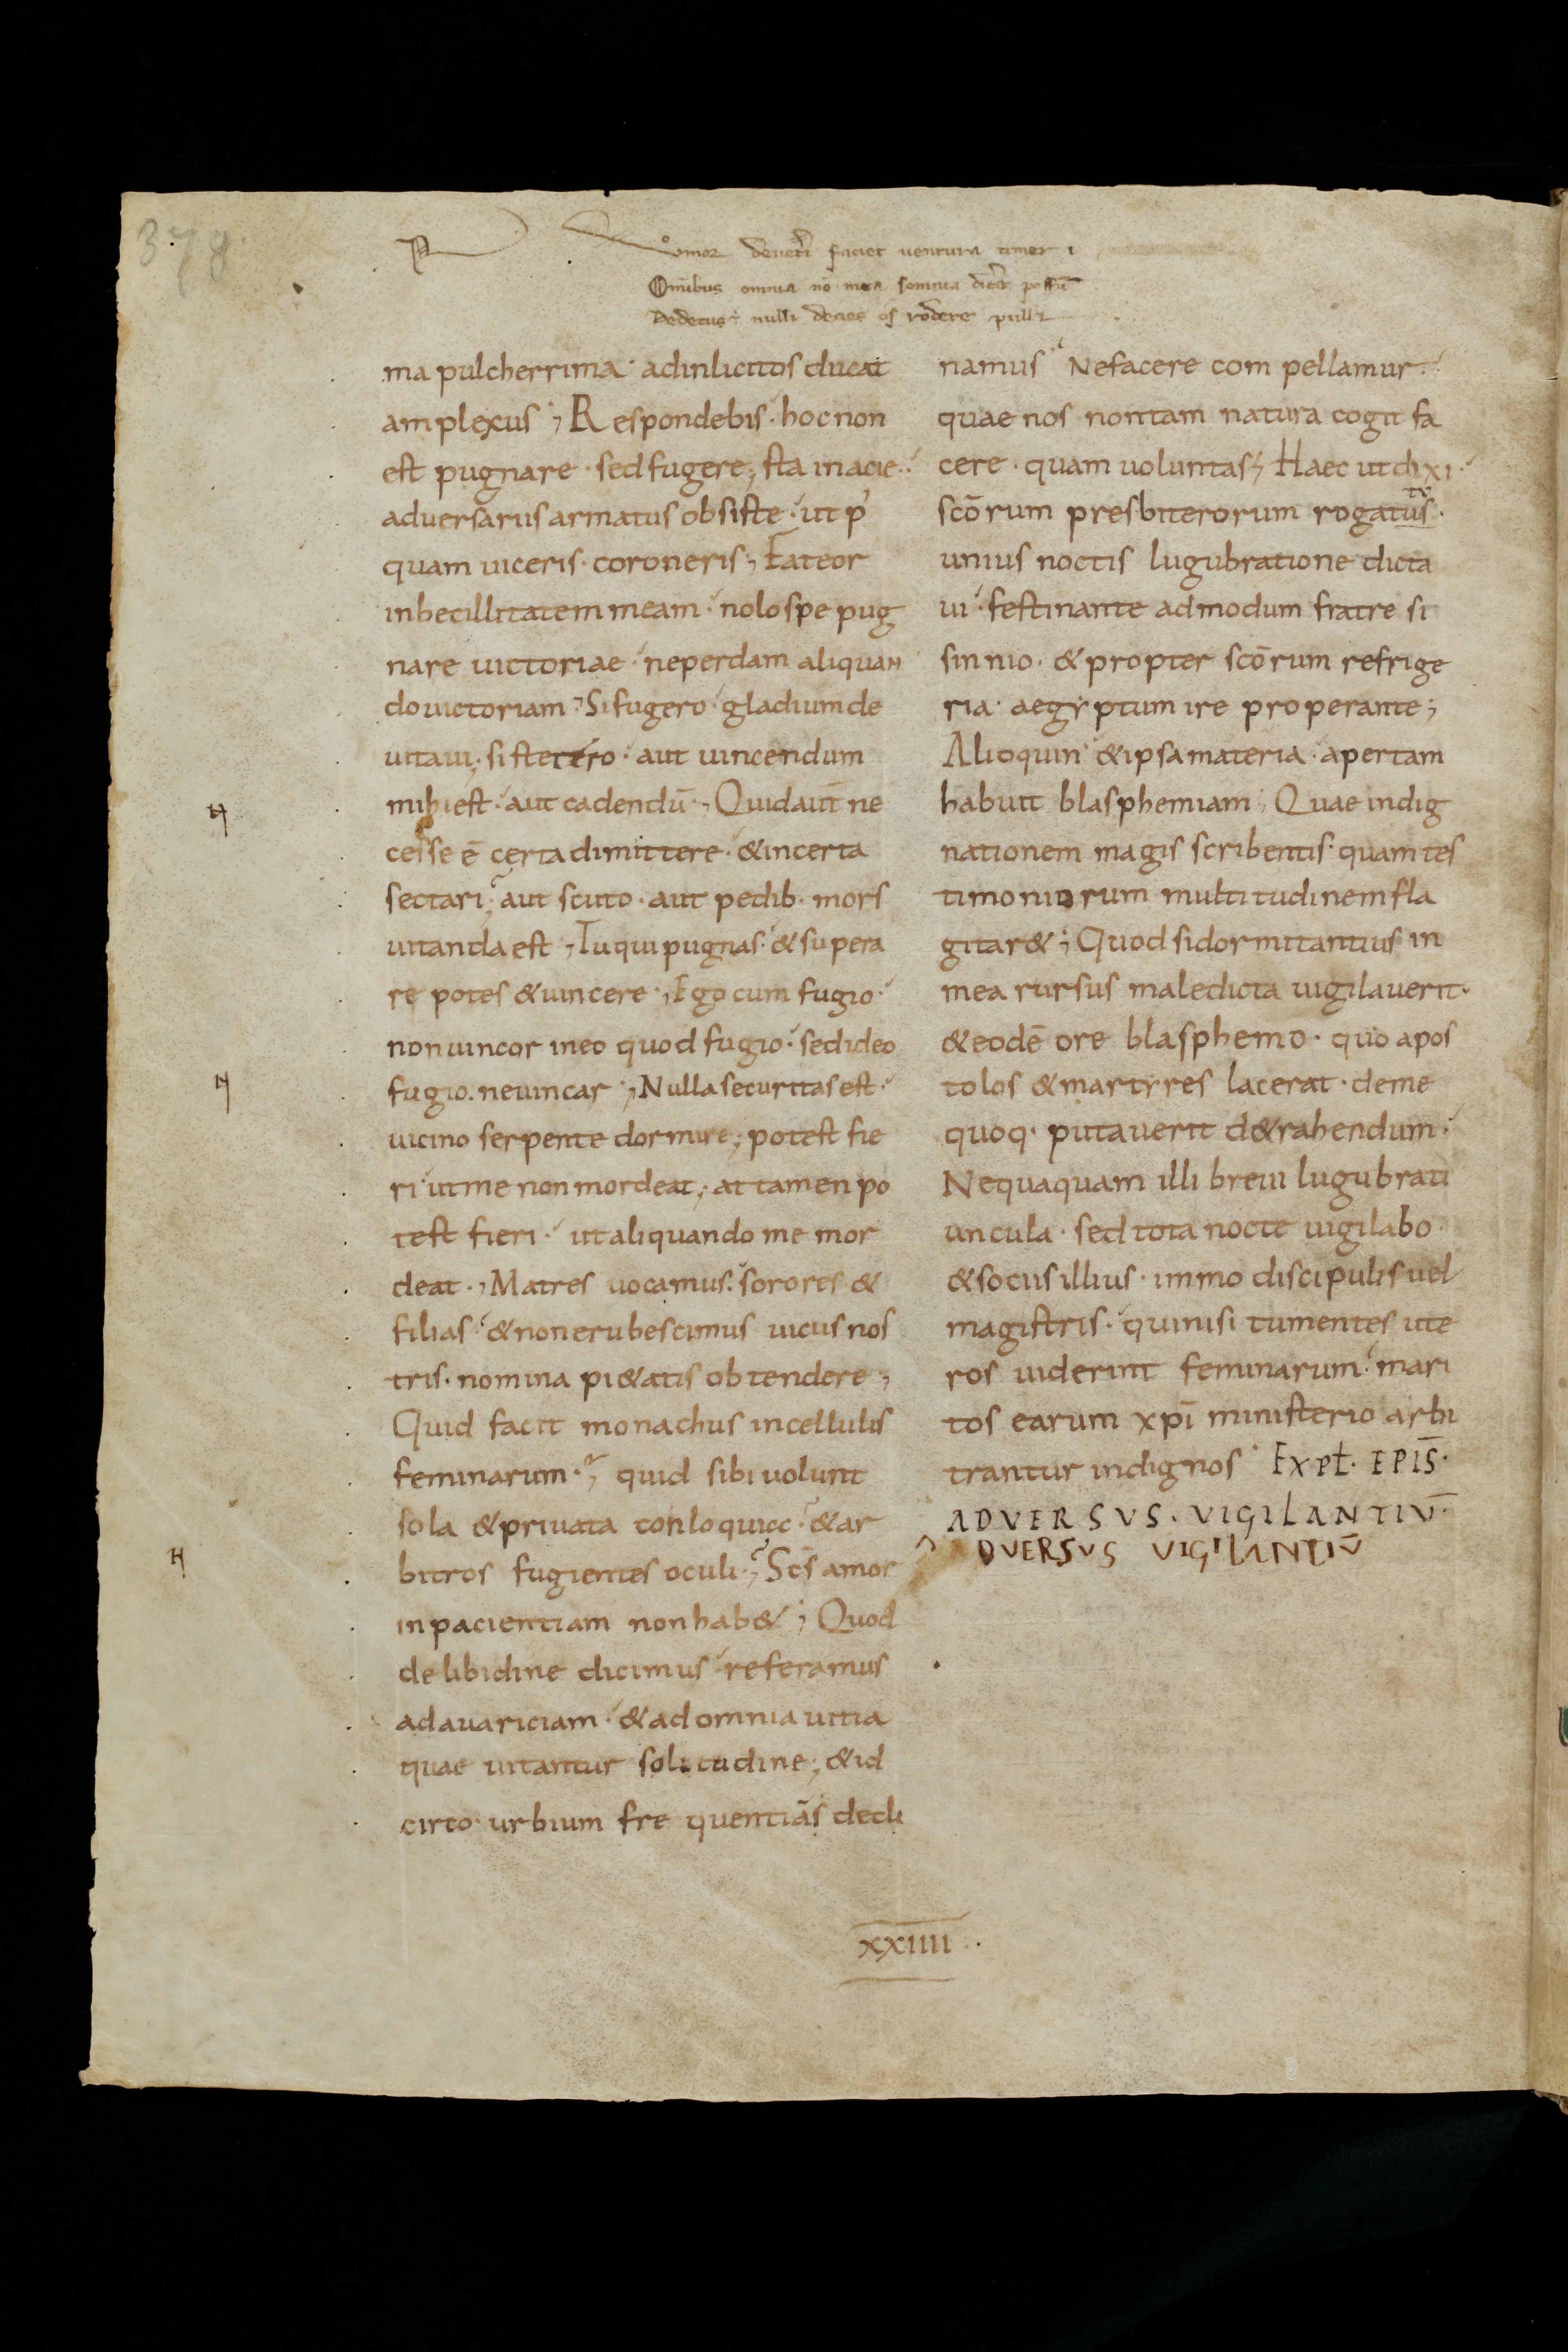 378
faciet ventura timer i
Omibus omnia nō mea somnia dicere possū
nulli decies os rodere pulli
ma pulcherrima· adinlicitos ducat
amplexus; Respondebis· hocnon
est pugnare· sedfugere; sta inacie·
adversarusarmatus obsiste· ut p̄
quam uiceris· coroneris; Fateor
inbecillitatem meam· nolospe pug
nare uictoriae· neperdam aliquan
douictoriam· Sifugero· gladiumde
uitaui; sistetero· aut uincendum
mihi est· aut cadendū; Quidaut̄ ne
cesse ē certa dimittere· &incerta
sectari; aut scuto· aut pedib· mors
uitanda est; Tuquipugnas· &supera
re potes &uincere; Ego cum fugio·
nonuincor ineo quod fugio· sedideo
fugio. neuincar; Nullasecuritasest·
uicino serpente dormire; potest fie
ri utme nonmordeat; attamen po
test fieri· utaliquando me mor
deat; Matres uocamus· sorores &
filias· &nonerubescimus uicusnos
tris· nomina pi&atis obtendere;
Quid facit monachus incellulis
feminarum; quid sibiuolunt
sola &priuata conloquia· &ar
bitros fugientes oculi; Scs̄ amor
inpacientiam nonhab&; Quod
delibidine dicimus referamus
adauariciam· &adomnia uitia
quae uitantur solitudine; &id
circo· urbium frequentiās decli
namus Nefacere compellamur·
quae nos nontam natura cogit fa
cere· quam uoluntas; Haec utdixi·
tu
scōrum presbiterorum rogatus·
unius noctis lugubratione dicta
ui· festinante admodum fratre si
sinnio· &propter scōrum refrige
ria· aegyptum ire properante;
Alioquin &ipsamateria· apertam
habuit blasphemiam; Quae indig
nationem magis scribentis· quamtes
timoniorum multitudinemfla
gitar&; Quodsidormitantius in
mea rursus maledicta uigilauerit·
&eodē ore blasphemo· quo apos
tolos &martyres lacerat· deme
quoq· putauerit d&rahendum·
Nequaquam illi breui lugubrati
uncula· sed tota nocte uigilabo·
&sociisillius· immo discipulis uel
magistris· quinisi tumentes ute
ros uiderint feminarum· mari
tos earum xpī ministerio arbi
trantur indignos Expt̄· EPIS̄·
ADVERSVS· VIGILANTIŪ·
DVERSVS VIGILANTIŪ
XXIIII·